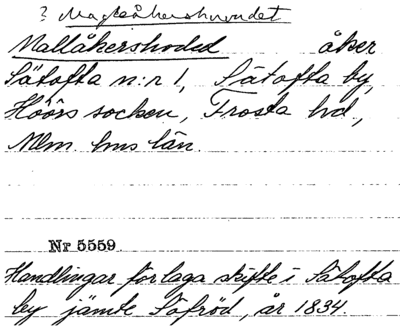 ?
Mallåkershoded åker
Sätofta n:r 1, Sätofta by,
Höörs socken, Frosta hd,
Mlm. hus län.
Nr 5559
Handlingar för laga skifte i Sätofta
by jämte Säfröd, år 1834.